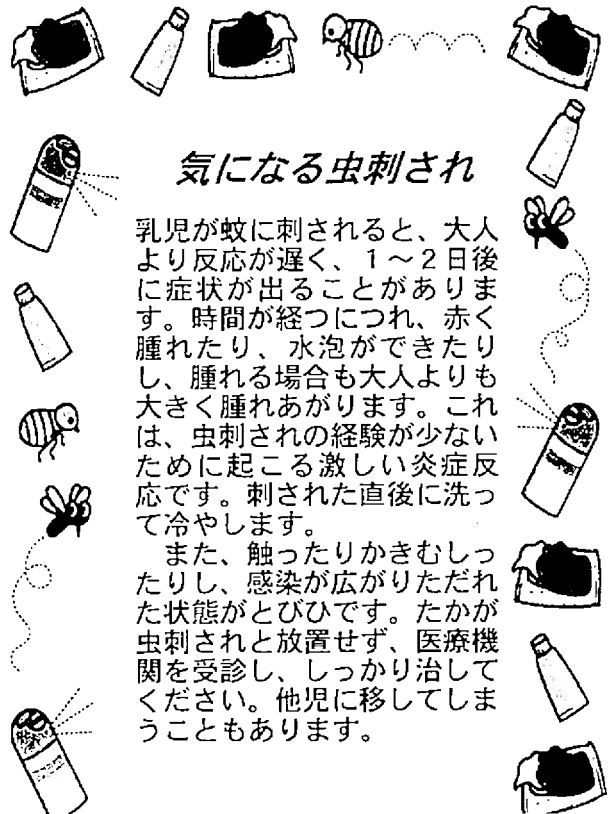 気になる虫刺され
乳児が蚊に刺されると、大人
より反応が遅く、１～２日後
に症状が出ることがありま
す。時間が経つにつれ、赤く
腫れたり、水泡ができたり
し、腫れる場合も大人よりも
大きく腫れあがります。これ
は、虫刺されの経験が少ない
ために起こる激しい炎症反
応です。刺された直後に洗っ
て冷やします。
　また、触ったりかきむしっ
たりし、感染が広がりただれ
た状態がとびひです。たかが
虫刺されと放置せず、医療機
関を受診し、しっかり治して
ください。他児に移してしま
うこともあります。